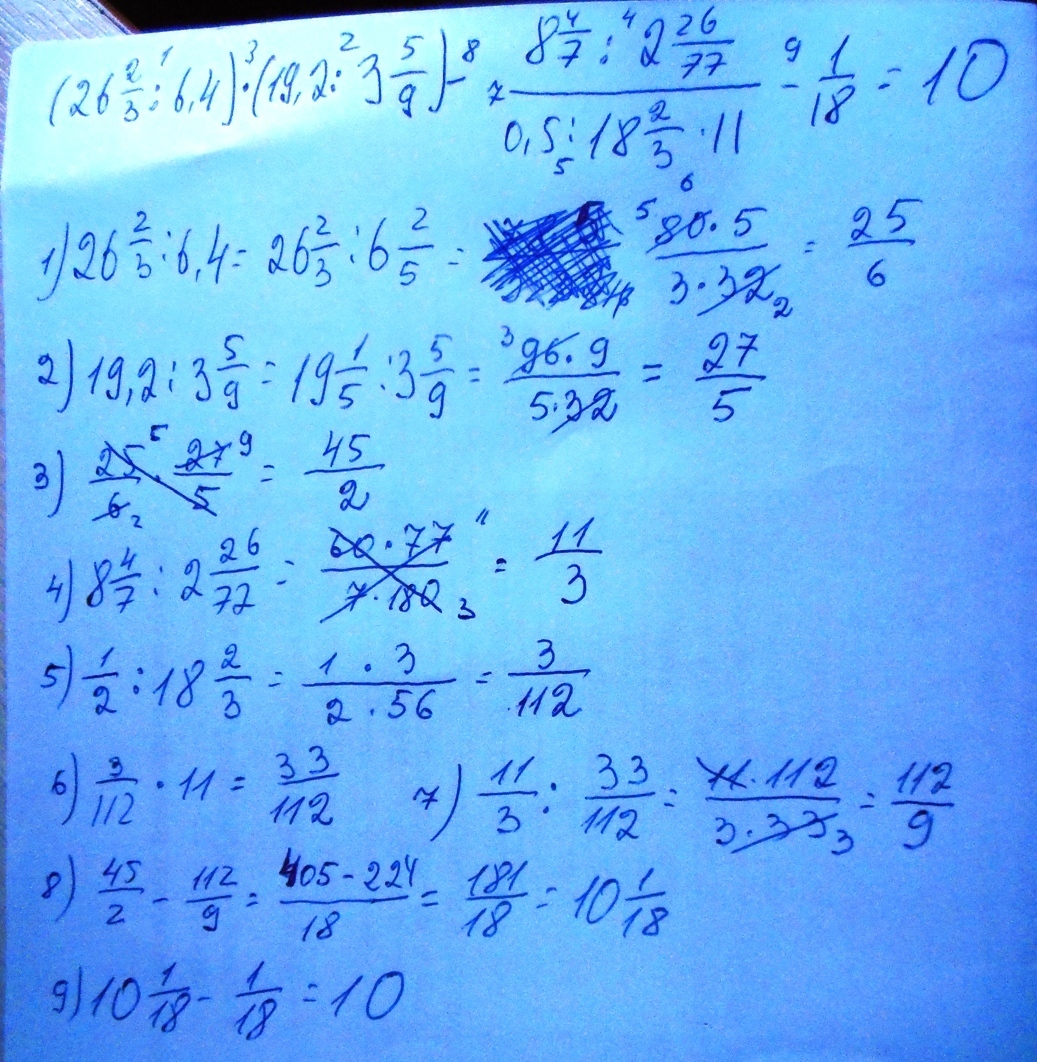 (26 2/3 : 6,4) · (19,2 : 3 5/9) - (8 4/7 : 2 26/77)/(0,5 : 18 2/3 · 11) - 1/18 = 10
1) 26 2/3 : 6,4 = 26 2/3 : 6 2/5 = (80·5)/(3·32) = 25/6
2) 19,2 : 3 5/9 = 19 1/5 : 3 5/9 = (96·9)/(5·32) = 27/5
3) 25/6 · 27/5 = 45/2
4) 8 4/7 : 2 26/77 = (60·77)/(7·180) = 11/3
5) 1/2 : 18 2/3 = (1·3)/(2·56) = 3/112
6) 3/112 · 11 = 33/112 7) 11/3 : 33/112 = (11·112)/(3·33) = 112/9
8) 45/2 - 112/9 = (405-224)/18 = 181/18 = 10 1/18
9) 10 1/18 - 1/18 = 10